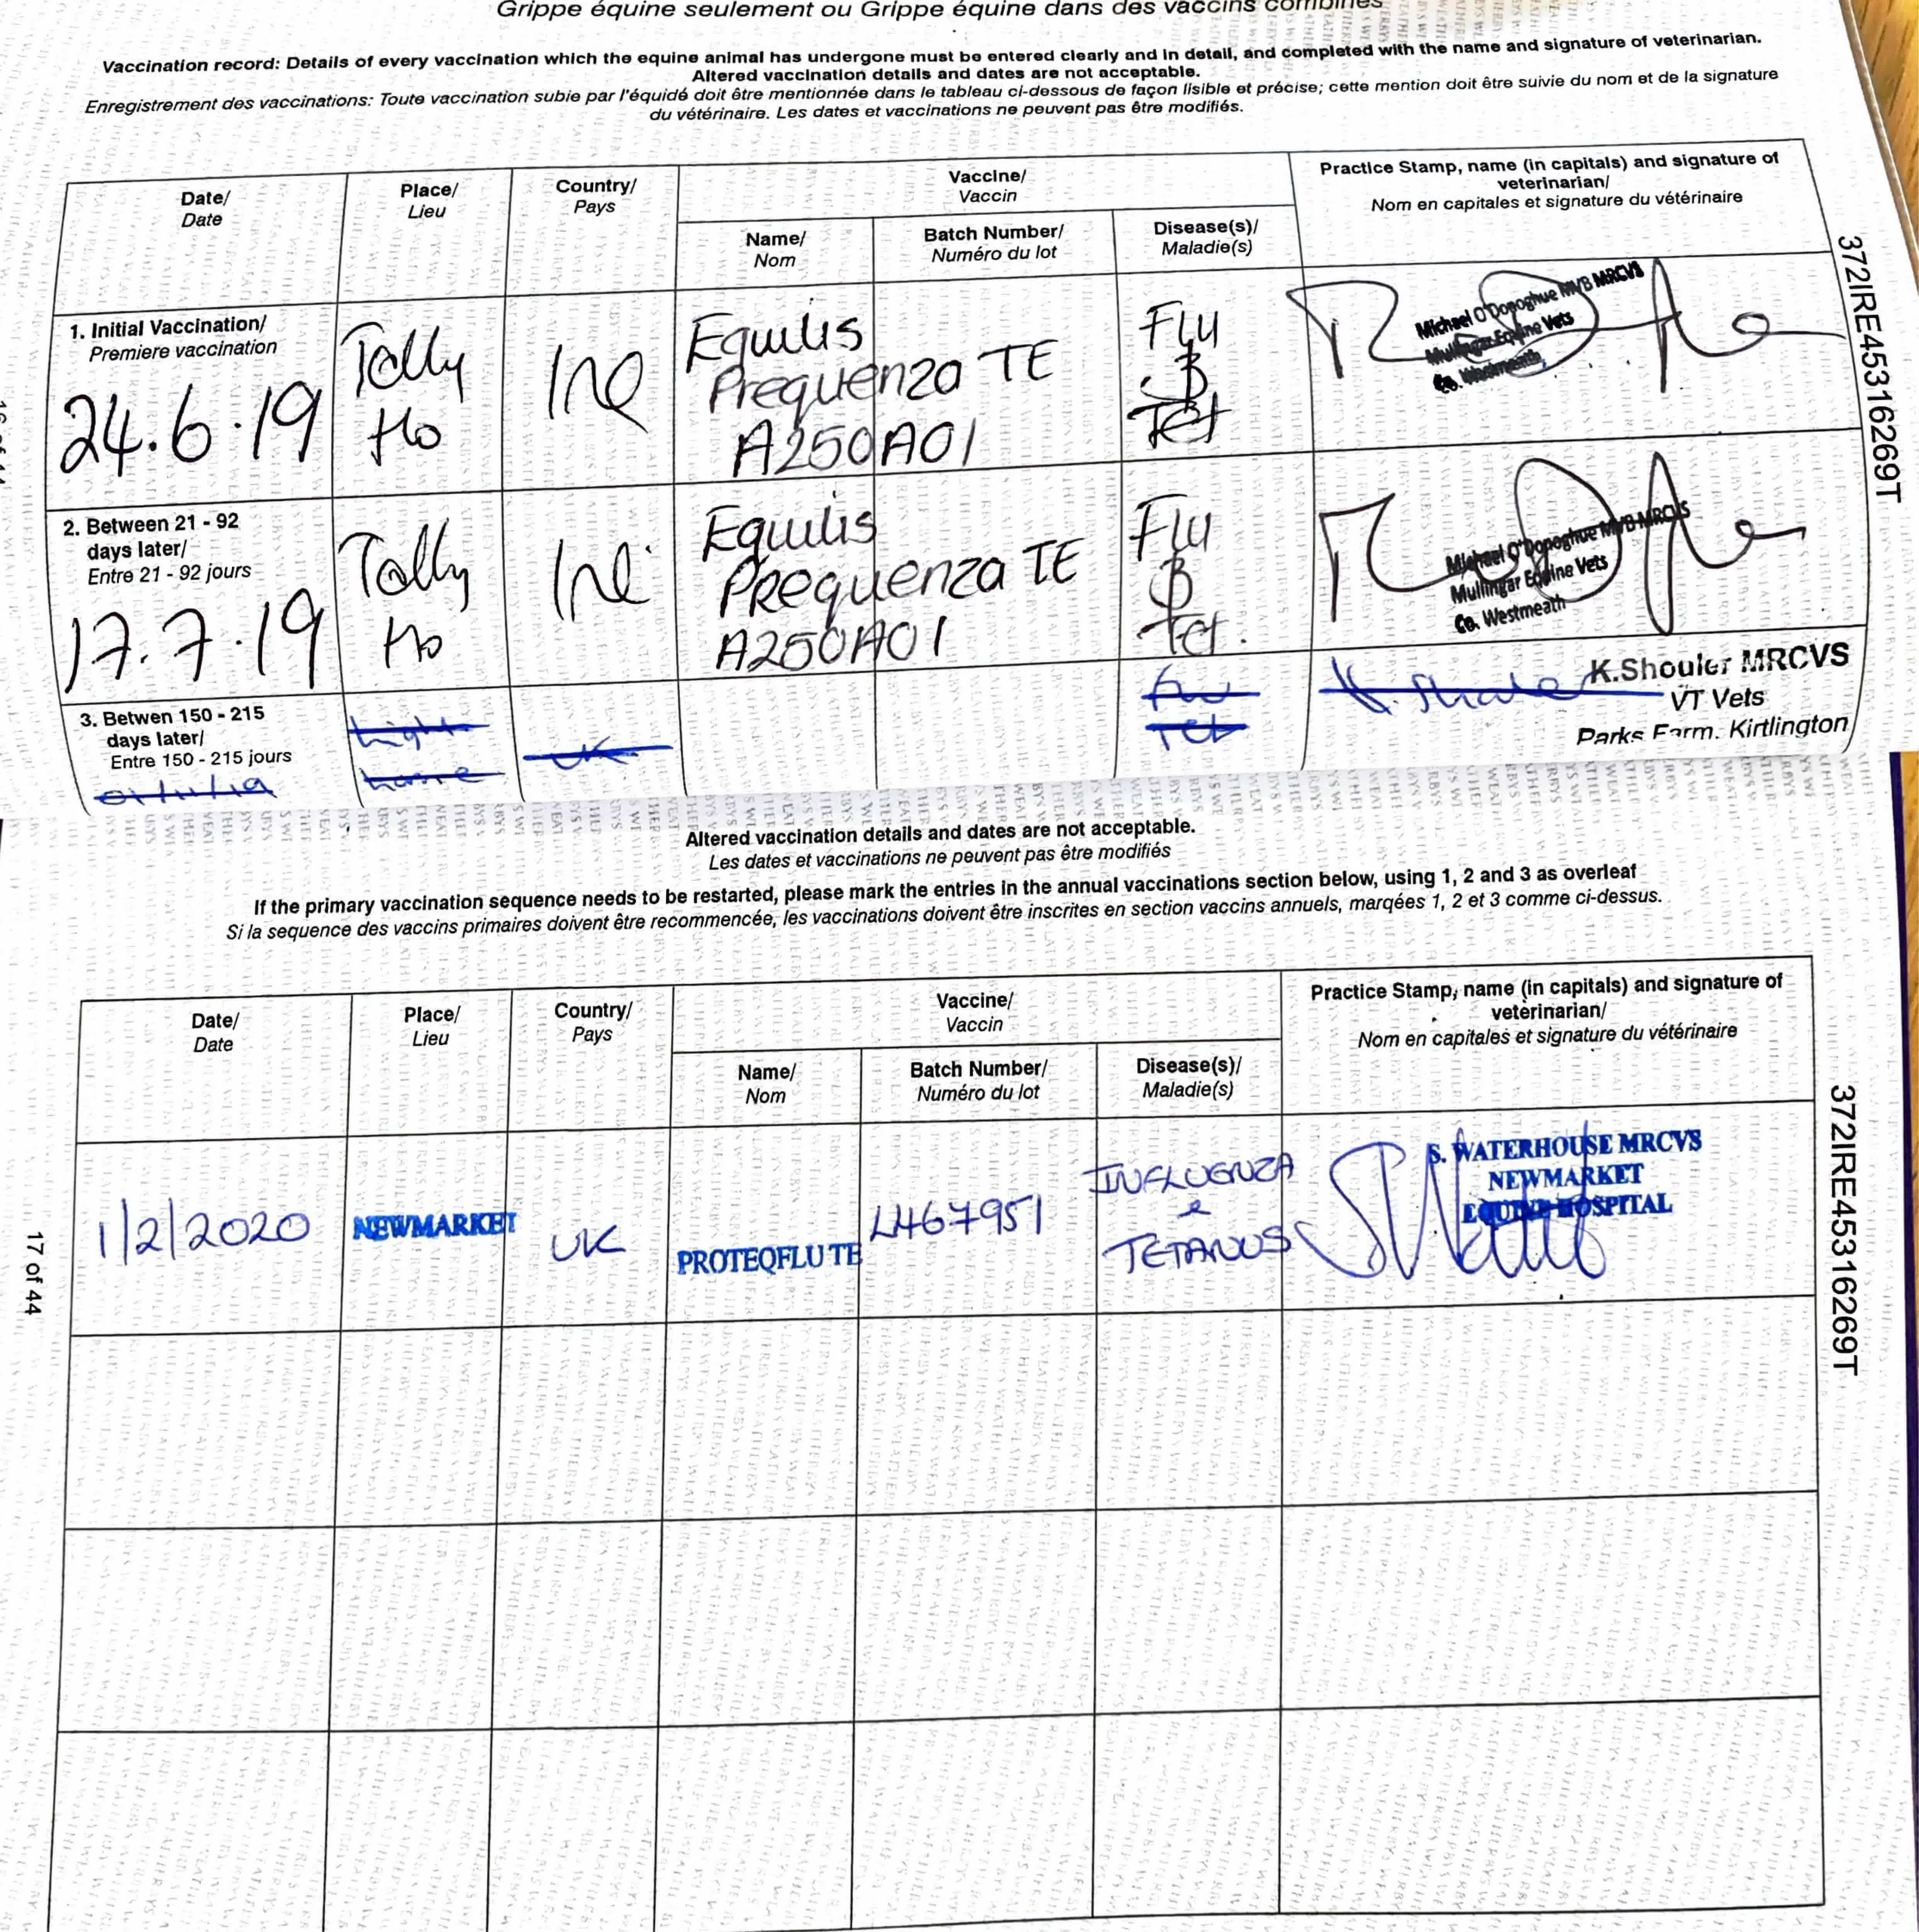 Grippe équine seulement ou Grippe équine dans des vaccins combinés
Vaccination record: Details of every vaccination which the equine animal has undergone must be entered clearly and in detail, and completed with the name and signature of veterinarian.
Altered vaccination details and dates are not acceptable.
Enregistrement des vaccinations: Toute vaccination subie par l'équidé doit être mentionnée dans le tableau ci-dessous de façon lisible et précise; cette mention doit être suivie du nom et de la signature
du vétérinaire. Les dates et vaccinations ne peuvent pas être modifiés.
Date/
Date
Place/
Lieu
Country/
Pays
Vaccine/
Vaccin
Name/
Nom
Batch Number/
Numéro du lot
Disease(s)/
Maladie(s)
Practice Stamp, name (in capitals) and signature of
veterinarian/
Nom en capitales et signature du vétérinaire
372IRE45316269T
1. Initial Vaccination/
Premiere vaccination
24.6.19
Tally
Ho
Ire
Equilis
Prequenza TE
A250A01
Flu
&
Tet
Michael O'Donoghue MVB MRCVS
Mullingar Equine Vets
Co. Westmeath
2. Between 21 - 92
days later/
Entre 21 - 92 jours
17.7.19
Tally
Ho
Ire
Equilis
Prequenza TE
A250A01
Flu
&
Tet.
Michael O'Donoghue MVB MRCVS
Mullingar Equine Vets
Co. Westmeath
3. Betwen 150 - 215
days later/
Entre 150 - 215 jours
UK
Flu
Tet
K. Shouler
K.Shouler MRCVS
VT Vets
Parks Farm. Kirtlington
Altered vaccination details and dates are not acceptable.
Les dates et vaccinations ne peuvent pas être modifiés
If the primary vaccination sequence needs to be restarted, please mark the entries in the annual vaccinations section below, using 1, 2 and 3 as overleaf
Si la sequence des vaccins primaires doivent être recommencée, les vaccinations doivent être inscrites en section vaccins annuels, marqées 1, 2 et 3 comme ci-dessus.
Date/
Date
Place/
Lieu
Country/
Pays
Vaccine/
Vaccin
Name/
Nom
Batch Number/
Numéro du lot
Disease(s)/
Maladie(s)
Practice Stamp, name (in capitals) and signature of
veterinarian/
Nom en capitales et signature du vétérinaire
1/2/2020
NEWMARKET
UK
PROTEQFLU TE
L467951
INFLUENZA
&
TETANUS
S. WATERHOUSE MRCVS
NEWMARKET
EQUINE HOSPITAL
372IRE45316269T
17 of 44